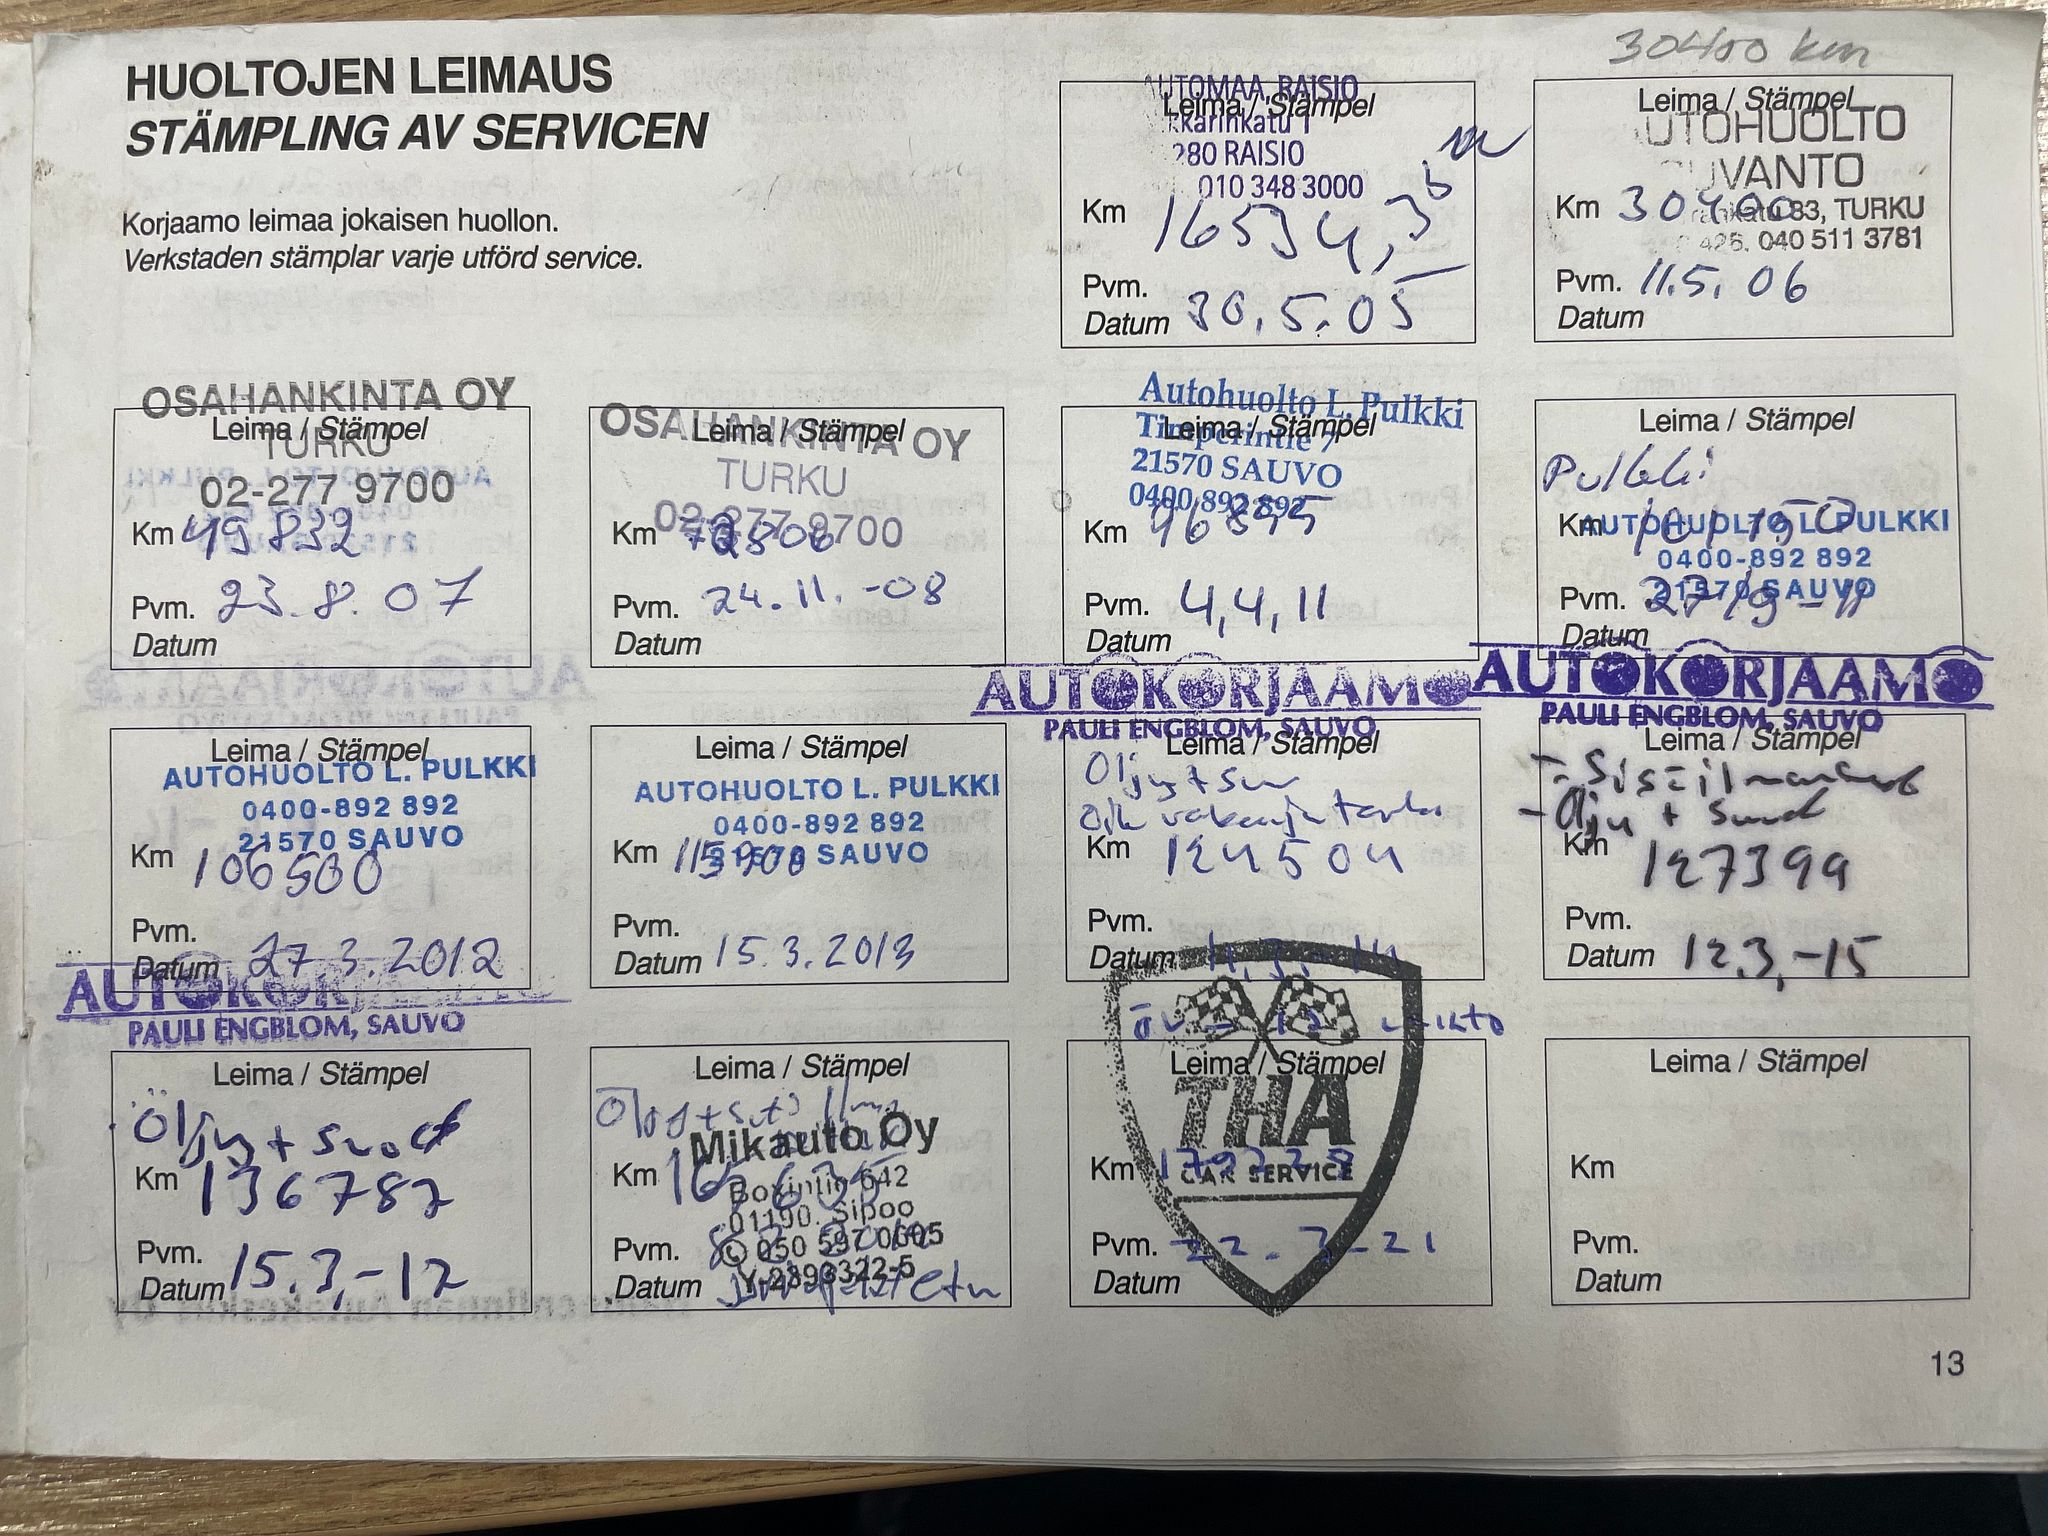 30400 km
HUOLTOJEN LEIMAUS
STÄMPLING AV SERVICEN
Korjaamo leimaa jokaisen huollon.
Verkstaden stämplar varje utförd service.
UTOMAA, RAISIO
Leima / Stämpel
karinkatu 1
280 RAISIO
010 348 3000
Km 16534,3
Pvm. 30.5.05
Datum
Leima / Stämpel
UTOHUOLTO
UVANTO
Km 30400
83, TURKU
040 511 3781
Pvm. 11.5.06
Datum
OSAHANKINTA OY
Leima / Stämpel
TURKU
02-277 9700
Km 49832
Pvm. 23.8.07
Datum
OSAHANKINTA OY
Leima / Stämpel
TURKU
02-277 9700
Km
Pvm. 24.11.-08
Datum
Autohuolto L. Pulkki
Leima / Stämpel
Timperintie 7
21570 SAUVO
0400 892 892
Km
Pvm. 4,4,11
Datum
Leima / Stämpel
Pulkki
Km
AUTOHUOLTO L. PULKKI
0400-892 892
21570 SAUVO
Pvm.
Datum
Leima / Stämpel
AUTOHUOLTO L. PULKKI
0400-892 892
21570 SAUVO
Km 106500
Pvm.
Datum 27.3.2012
Leima / Stämpel
AUTOHUOLTO L. PULKKI
0400-892 892
21570 SAUVO
Km 115900
Pvm.
Datum 15.3.2013
AUTOKORJAAMO
PAULI ENGBLOM, SAUVO
Leima / Stämpel
Öljyt + suo
Km 124504
Pvm.
Datum 11.3.-14
AUTOKORJAAMO
PAULI ENGBLOM, SAUVO
Leima / Stämpel
- Öljy + suod
Km 127399
Pvm.
Datum 12.3,-15
AUTOKORJAAMO
PAULI ENGBLOM, SAUVO
Leima / Stämpel
Öljyt + suod
Km 136787
Pvm.
Datum 15.3,-17
Leima / Stämpel
Mikauto Oy
Km
642
01190 Sipoo
Pvm.
050 597 0605
Datum
Y-2893322-5
Leima / Stämpel
THA
Km
CAR SERVICE
Pvm. 22-3-21
Datum
Leima / Stämpel
Km
Pvm.
Datum
13